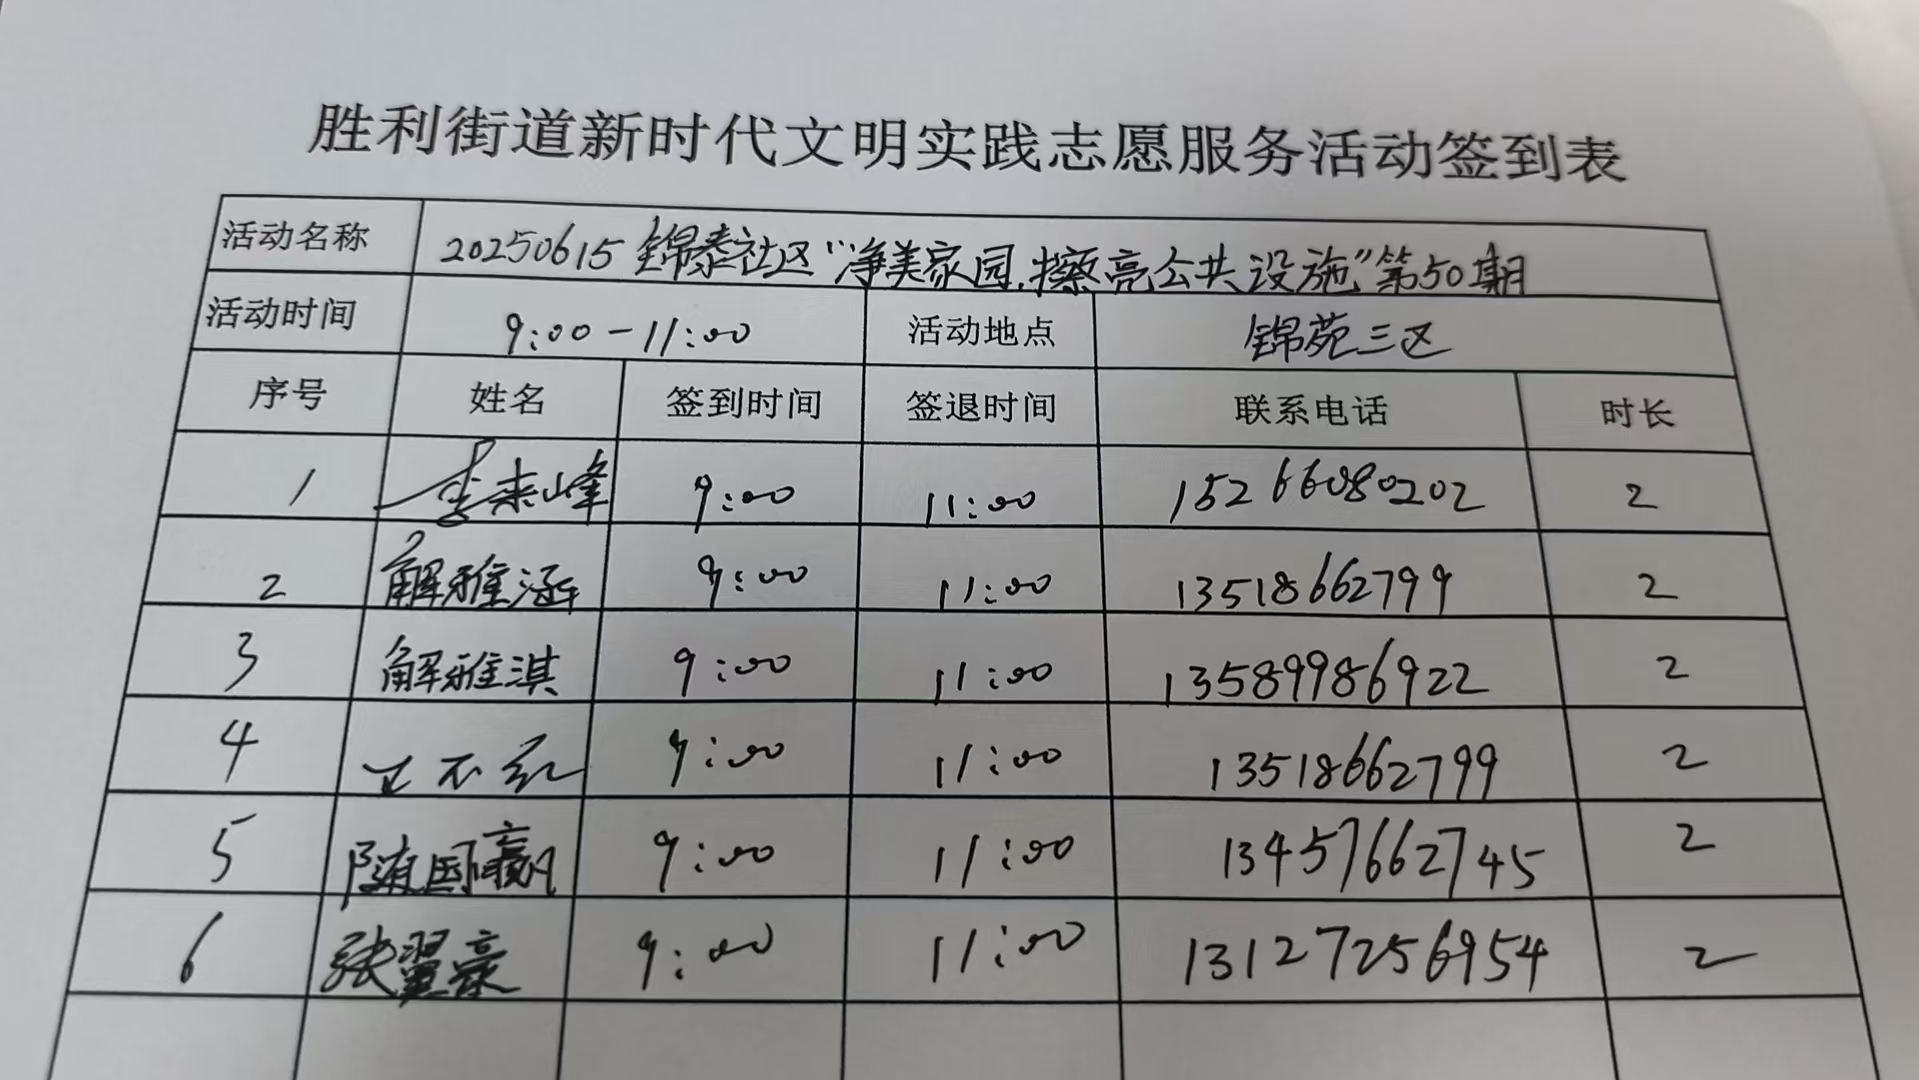 胜利街道新时代文明实践志愿服务活动签到表
活动名称 20250615锦泰社区“净美家园.擦亮公共设施”第50期
活动时间 9:00-11:00 活动地点 锦苑三区
序号 姓名 签到时间 签退时间 联系电话 时长
1 李来峰 9:00 11:00 15266080202 2
2 解雅涵 9:00 11:00 13518662799 2
3 解雅淇 9:00 11:00 13589986922 2
4 9:00 11:00 13518662799 2
5 随国赢 9:00 11:00 13457662745 2
6 张翼豪 9:00 11:00 13127256954 2